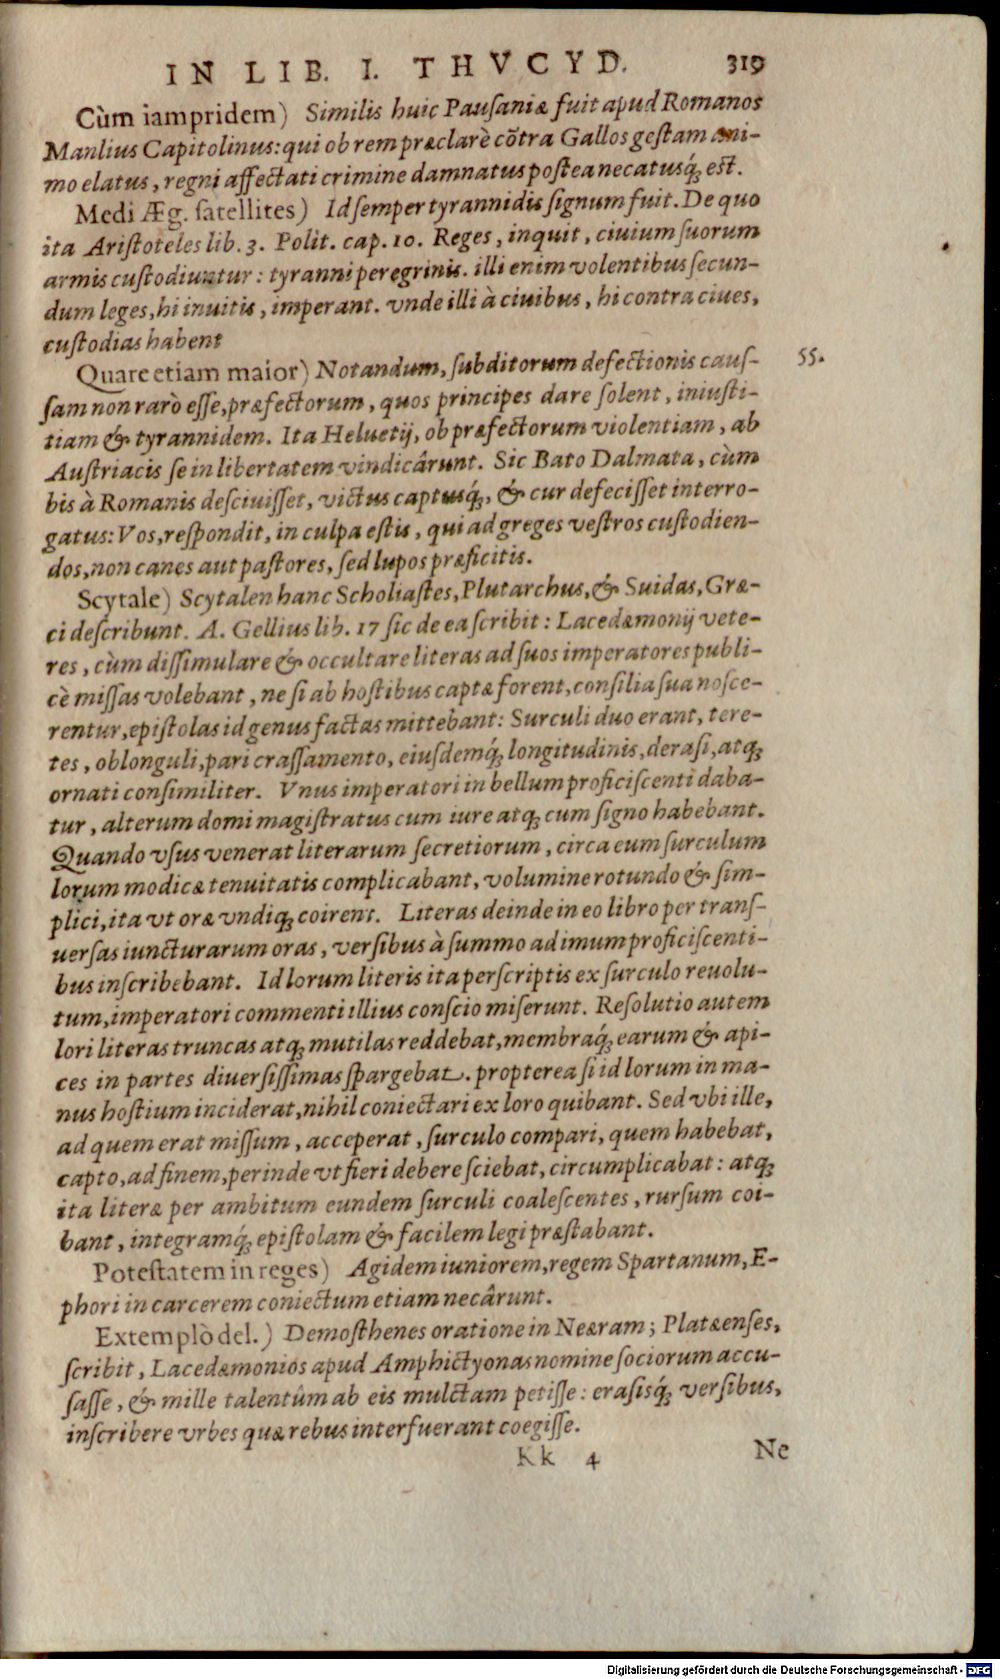 IN LIB. I. THVCYD. 319
Cùm iampridem) Similis huic Pauſaniæ fuit apud Romanos
Manlius Capitolinus: qui ob rem præclarè cõtra Gallos geſtam ani-
mo elatus, regni affectati crimine damnatus poſtea necatusq́ꝫ eſt.
Medi Æg. ſatellites) Id ſemper tyrannidis ſignum fuit. De quo
ita Ariſtoteles lib. 3. Polit. cap. 10. Reges, inquit, ciuium ſuorum
armis cuſtodiuntur: tyranni peregrinis. illi enim volentibus ſecun-
dum leges, hi inuitis, imperant. vnde illi à ciuibus, hi contra ciues,
cuſtodias habent
Quare etiam maior) Notandum, ſubditorum defectionis cauſ- 55.
ſam non rarò eſſe, præfectorum, quos principes dare ſolent, iniuſti-
tiam & tyrannidem. Ita Heluetij, ob præfectorum violentiam, ab
Auſtriacis ſe in libertatem vindicârunt. Sic Bato Dalmata, cùm
bis à Romanis deſciuiſſet, victus captusq́ꝫ, & cur defeciſſet interro-
gatus: Vos, reſpondit, in culpa eſtis, qui ad greges veſtros cuſtodien-
dos, non canes aut paſtores, ſed lupos præficitis.
Scytale) Scytalen hanc Scholiaſtes, Plutarchus, & Suidas, Græ-
ci deſcribunt. A. Gellius lib. 17 ſic de ea ſcribit: Lacedæmonij vete-
res, cùm diſſimulare & occultare literas ad ſuos imperatores publi-
cè miſſas volebant, ne ſi ab hoſtibus captæ forent, conſilia ſua noſce-
rentur, epiſtolas id genus factas mittebant: Surculi duo erant, tere-
tes, oblonguli, pari craſſamento, eiuſdemq́ꝫ longitudinis, deraſi, atqꝫ
ornati conſimiliter. Vnus imperatori in bellum proficiſcenti daba-
tur, alterum domi magiſtratus cum iure atqꝫ cum ſigno habebant.
Quando vſus venerat literarum ſecretiorum, circa eum ſurculum
lorum modicæ tenuitatis complicabant, volumine rotundo & ſim-
plici, ita vt oræ vndiqꝫ coirent. Literas deinde in eo libro per tranſ-
uerſas iuncturarum oras, verſibus à ſummo ad imum proficiſcenti-
bus inſcribebant. Id lorum literis ita perſcriptis ex ſurculo reuolu-
tum, imperatori commenti illius conſcio miſerunt. Reſolutio autem
lori literas truncas atqꝫ mutilas reddebat, membraq́ꝫ earum & api-
ces in partes diuerſiſſimas ſpargebat. propterea ſi id lorum in ma-
nus hoſtium inciderat, nihil coniectari ex loro quibant. Sed vbi ille,
ad quem erat miſſum, acceperat, ſurculo compari, quem habebat,
capto, ad finem, perinde vt fieri debere ſciebat, circumplicabat: atqꝫ
ita literæ per ambitum eundem ſurculi coaleſcentes, rurſum coi-
bant, integramq́ꝫ epiſtolam & facilem legi præſtabant.
Poteſtatem in reges) Agidem iuniorem, regem Spartanum, E-
phori in carcerem coniectum etiam necârunt.
Extemplò del.) Demoſthenes oratione in Neæram; Platæenſes,
ſcribit, Lacedæmonios apud Amphictyonas nomine ſociorum accu-
ſaſſe, & mille talentûm ab eis mulctam petiſſe: eraſisq́ꝫ verſibus,
inſcribere vrbes quæ rebus interfuerant coegiſſe.
Kk 4 Ne
Digitalisierung gefördert durch die Deutsche Forschungsgemeinschaft - DFG